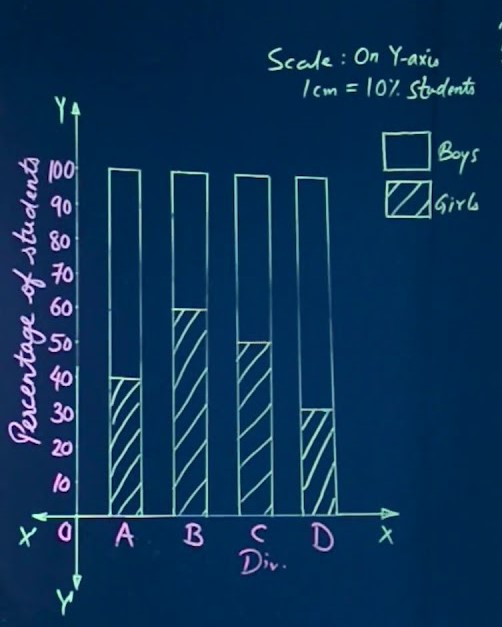 Scale : On Y-axis
1cm = 10% Students
Y
Boys
Girls
Percentage of students
100
90
80
70
60
50
40
30
20
10
X 0 A B C D X
Div.
Y'